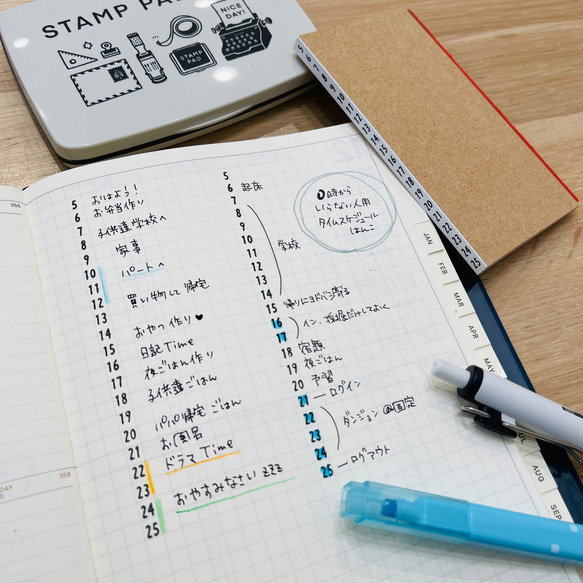 STAMP PAD
NICE DAY!
STAMP PAD
5 6 7 8 9 10 11 12 13 14 15 16 17 18 19 20 21 22 23 24 25
5 おはよう!
6 お弁当作り
7 子供達学校へ
8 家事
9
10 パートへ
11
12 買い物して帰宅
13
14 おやつ作り♥
15 日記Time
16 夜ごはん作り
17 子供達ごはん
18
19 パパ帰宅ごはん
20
21 お風呂
22 ドラマTime
23
24 おやすみなさいzzz
25
5
6 起床
7
8
9
10 学校
11
12
13
14
15 帰りにヨドバシ寄る
16
17 イン、採掘だけしておく
18 宿題
19 夜ごはん
20 予習
21 ログイン
22
23 ダンジョン 固定
24
25 ログアウト
0時から
いらない人用
タイムスケジュール
はんこ
JAN
FEB
MAR
APR
MAY
JUL
AUG
SEP